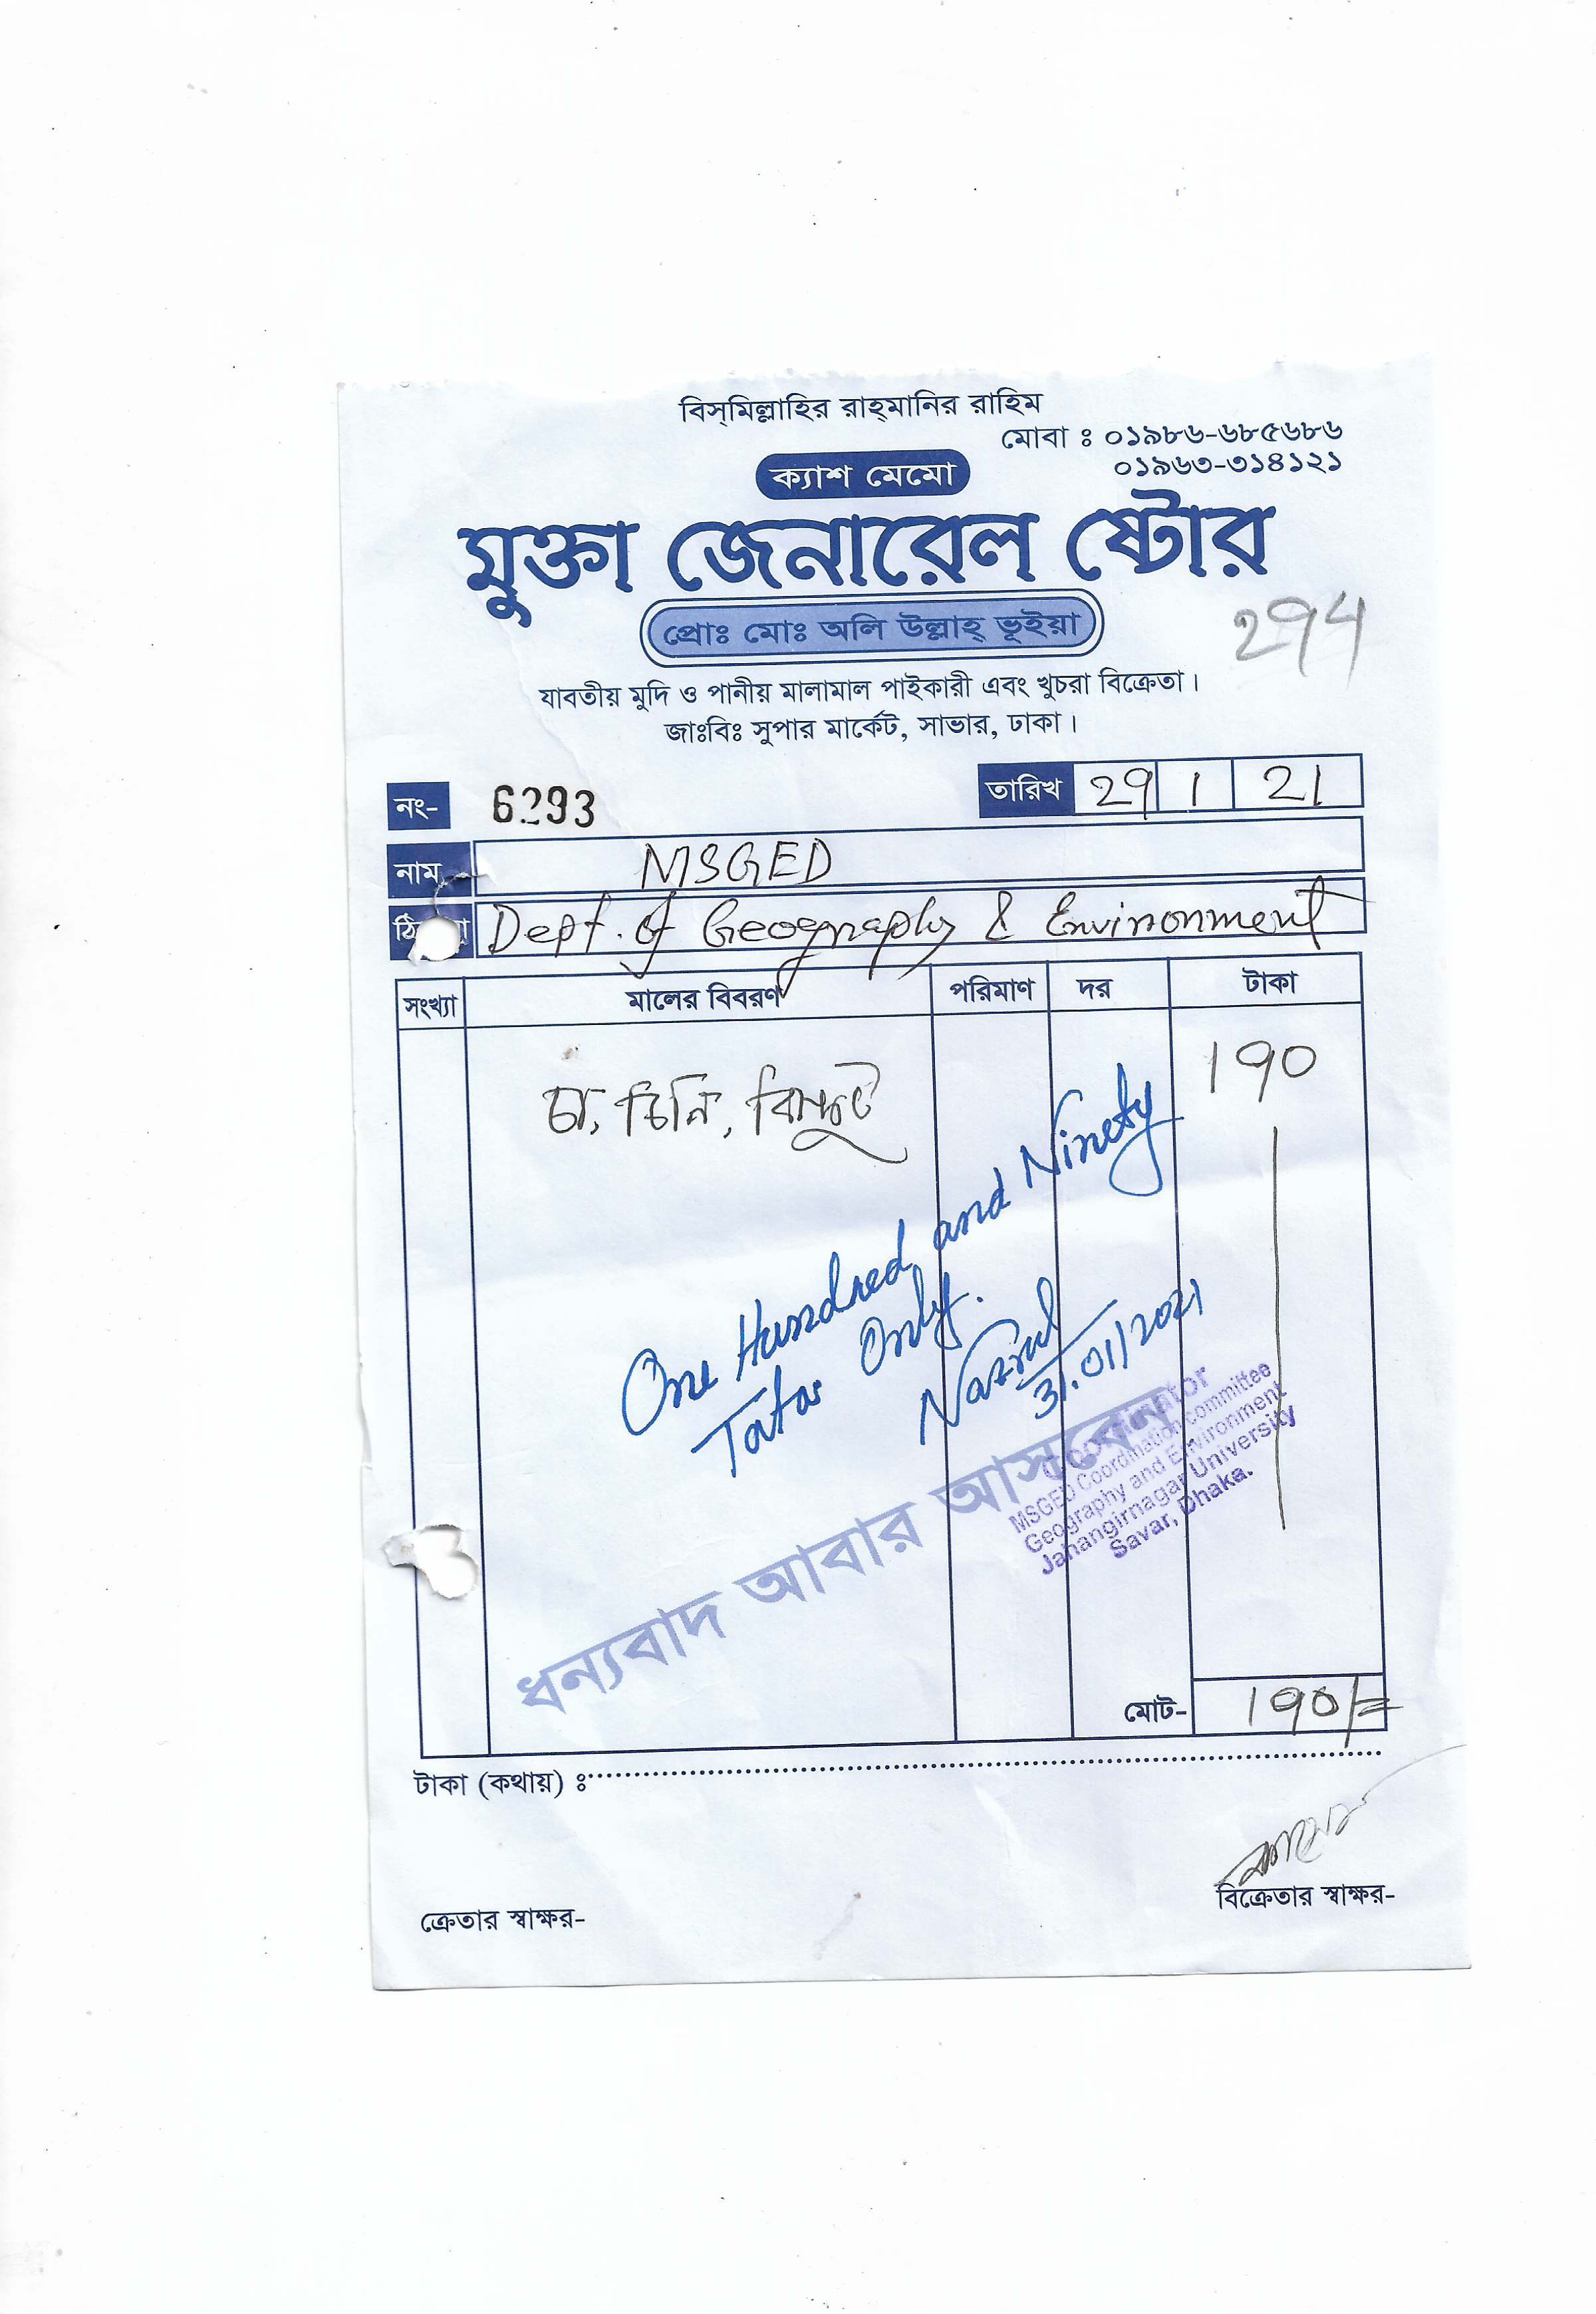 বিস্‌মিল্লাহির রাহ্‌মানির রাহিম
মোবা ঃ ০১৯৮৬-৬৮৫৬৮৬
০১৯৬৩-৩১৪১২১
ক্যাশ মেমো
মুক্তা জেনারেল ষ্টোর
প্রোঃ মোঃ অলি উল্লাহ্ ভূইয়া
294
যাবতীয় মুদি ও পানীয় মালামাল পাইকারী এবং খুচরা বিক্রেতা।
জাঃবিঃ সুপার মার্কেট, সাভার, ঢাকা।
নং- 6293 তারিখ 29 1 21
নাম MSGED
Dept. of Geography & Environment
সংখ্যা মালের বিবরণ পরিমাণ দর টাকা
চা, চিনি, বিস্কুট 190
One Hundred and Ninety
Taka Only.
Nazrul
31.01/2021
MSGED Coordination committee
Geography and Environment
Jahangirnagar University
Savar, Dhaka.
ধন্যবাদ আবার আসবেন
মোট- 190/=
টাকা (কথায়) ঃ
বিক্রেতার স্বাক্ষর-
ক্রেতার স্বাক্ষর-